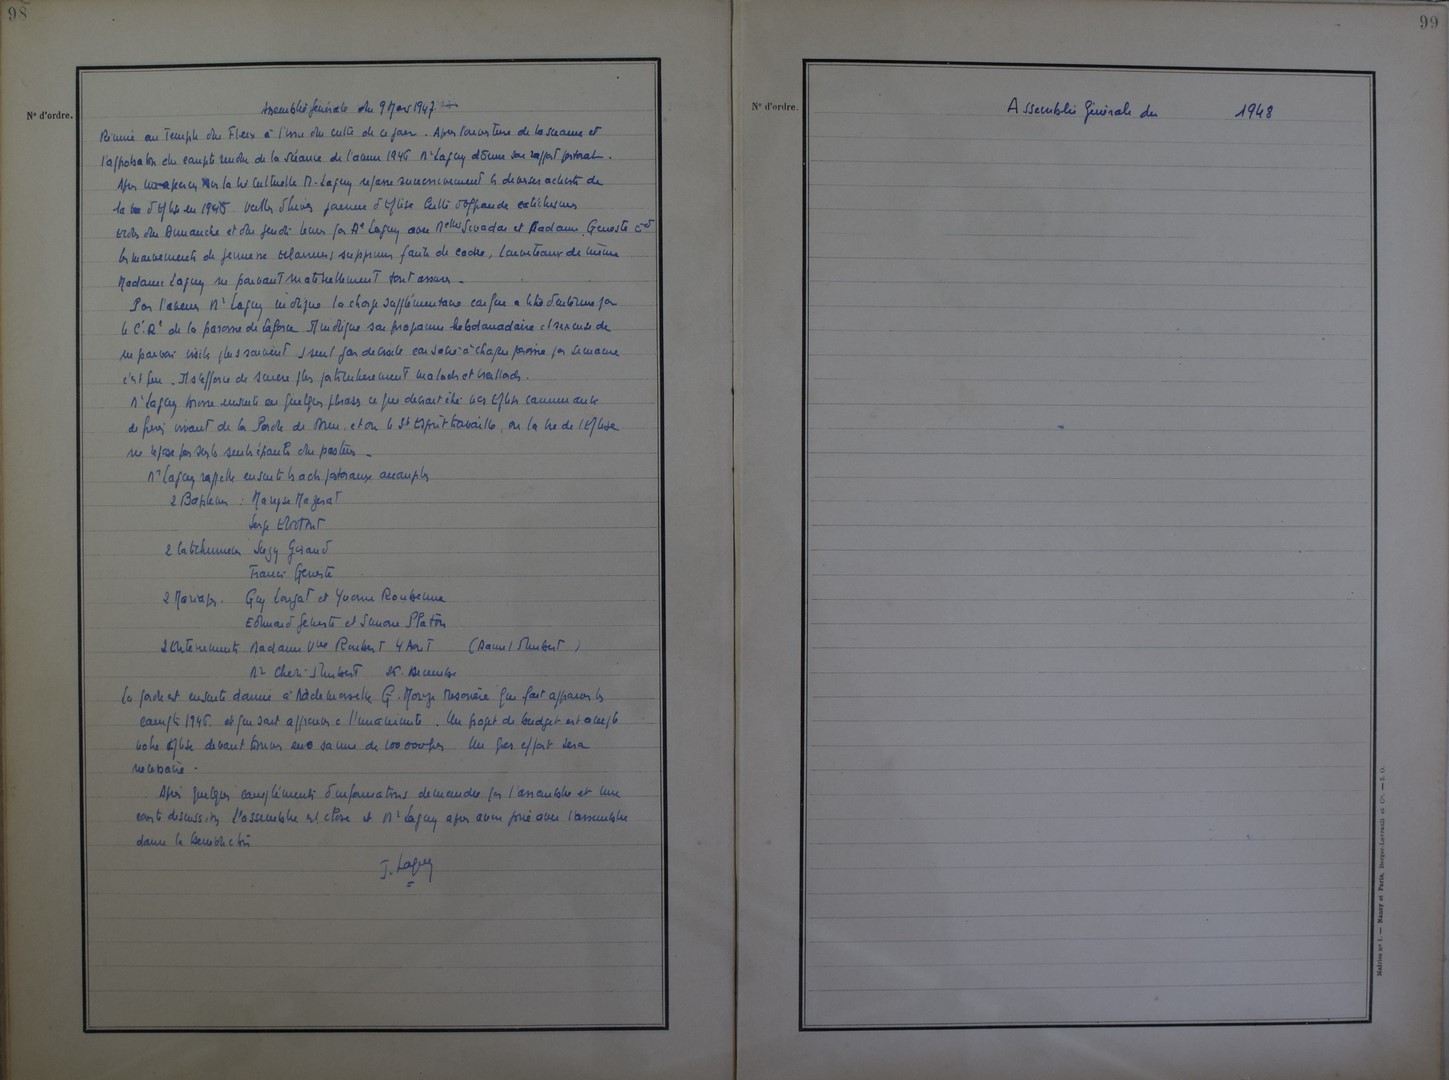 98
N° d'ordre.
Assemblée Générale du 9 Mars 1947
Réunie au Temple du Fleix à l'issue du culte de ce jour. Après l'ouverture de la séance et
l'approbation du compte rendu de la séance de l'année 1946 Mr Laguy donne son rapport pastoral.
Après un aperçu sur la vie Cultuelle M. Laguy repasse successivement les diverses activités de
la vie d'Eglise en 1946 Veillées d'hiver journée d'Eglise Culte d'offrande catéchismes
Ecoles du Dimanche et du Jeudi tenues par Me Laguy avec Melles et Madame Geneste
les mouvements de jeunesse éclaireurs supprimés faute de cadre, Louveteaux de même
Madame Laguy ne pouvant matériellement tout assurer.
Pour l'avenir Mr Laguy indique la charge supplémentaire confiée à titre d'intérim par
le C. Rl de la paroisse de Laforce Il indique son programme hebdomadaire et s'excuse de
ne pouvoir visiter plus souvent 1 seul jour de visite consacré à chaque paroisse par semaine
c'est peu. Il s'efforce de suivre plus particulièrement malades et vieillards.
Mr Laguy trace ensuite en quelques phrases ce que devrait être nos Eglises communauté
de foi vivant de la Parole de Dieu et où le St Esprit travaille, où la vie de l'Eglise
ne repose pas sur les seules épaules du pasteur.
Mr Laguy rappelle ensuite les actes pastoraux accomplis
2 Baptêmes : Maryse Mazerat
Serge
2 Catéchumènes Suzy Giraud
Francis Geneste
2 Mariages. Guy Longat et Yvonne Roubenne
Edouard Geneste et Simone Platon
2 Enterrements Madame Vve Roubert 4 Août (Daniel Imbert)
Mr Chéri Imbert 25 Décembre
La parole est ensuite donnée à Mademoiselle G. Mouze qui fait approuver les
comptes 1946 et qui sont approuvés à l'unanimité. Un projet de budget est accepté
notre Eglise devant trouver une somme de 100 000 frs Un gros effort sera
nécessaire.
Après quelques compléments d'informations demandés par l'assemblée et une
courte discussion l'assemblée est close et Mr Laguy après avoir prié avec l'assemblée
donne la bénédiction
J. Laguy
99
N° d'ordre.
Assemblée Générale du 1948
Modèle n° 1. — Nancy et Paris, Berger-Levrault et Cie. — S. O.